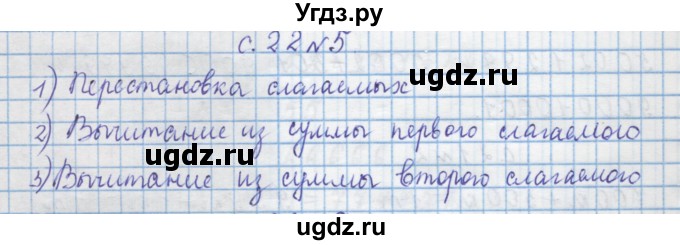 Угдз.ру
с. 22 №5
1) Перестановка слагаемых
2) Вычитание из суммы первого слагаемого
3) Вычитание из суммы второго слагаемого
ugdz.ru
ugdz.ru
ugdz.ru
ugdz.ru
ugdz.ru